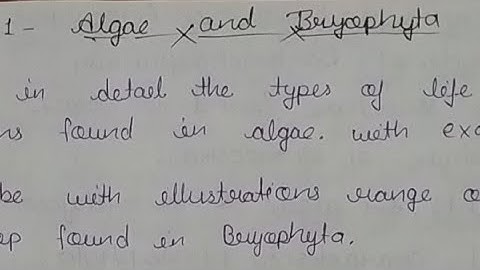 1 - Algae and Bryophyta
in detail the types of life
found in algae. with
with illustrations range
found in Bryophyta.